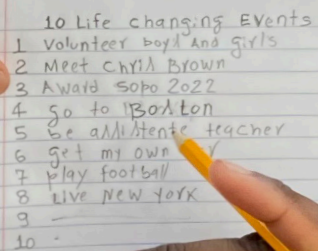 10 Life Changing Events
1 Volunteer boys And girls
2 Meet Chris Brown
3 Award SoPo 2022
4 go to Boston
5 be assistente teacher
6 get my own
7 play football
8 Live New York
9 -
10 -